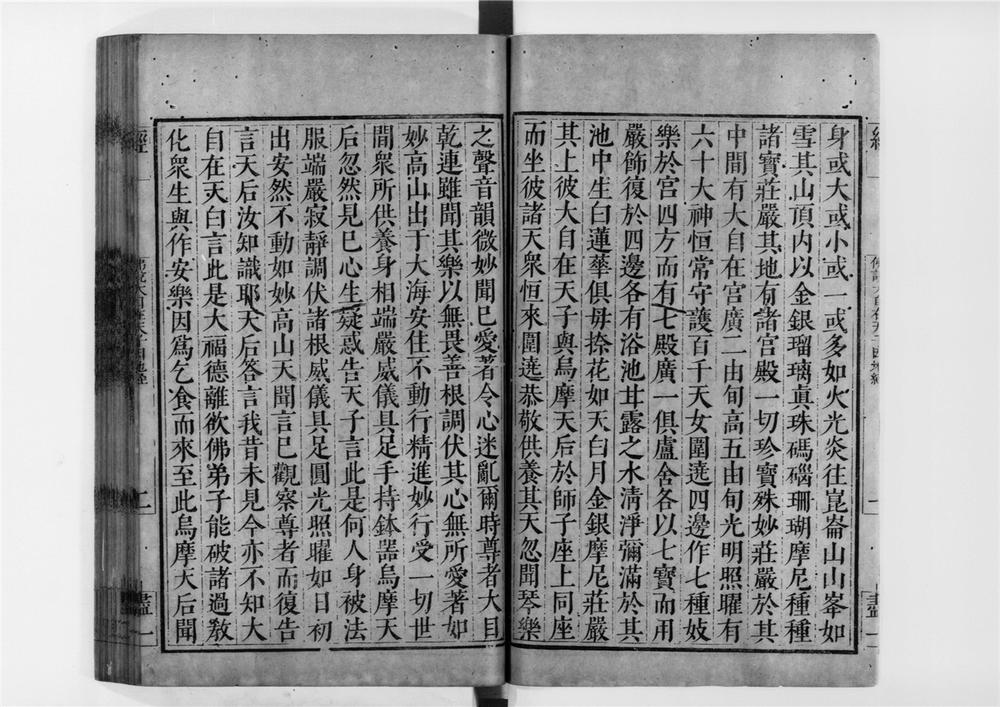 身或大或小或一或多如火光炎往崑崙山山峯如
雪其山頂内以金銀瑠璃真珠碼碯珊瑚摩尼種種
諸寶莊嚴其地有諸宮殿一切珍寶殊妙莊嚴於其
中間有大自在宮廣二由旬高五由旬光明照曜有
六十大神恒常守護百千天女圍遶四邊作七種妓
樂於宮四方而有七殿廣一俱盧舍各以七寶而用
嚴飾復於四邊各有浴池甘露之水清淨彌滿於其
池中生白蓮華俱毋捺花如天白月金銀摩尼莊嚴
其上彼大自在天子與烏摩天后於師子座上同座
而坐彼諸天衆恒來圍遶恭敬供養其天忽聞琴樂
之聲音韻微妙聞已愛著令心迷亂爾時尊者大目
乾連雖聞其樂以無畏善根調伏其心無所愛著如
妙高山出于大海安住不動行精進妙行受一切世
間衆所供養身相端嚴威儀具足手持鉢器烏摩天
后忽然見已心生疑惑告天子言此是何人身被法
服端嚴寂靜調伏諸根威儀具足圓光照曜如日初
出安然不動如妙高山天聞言已觀察尊者而復告
言天后汝知識耶天后答言我昔未見今亦不知大
自在天白言此是大福德離欲佛弟子能破諸過教
化衆生與作安樂因爲乞食而來至此烏摩天后聞